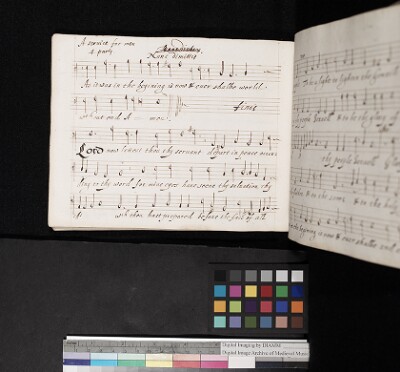 A service for men
4 parts
Nunc dimittis
As it was in the begining is now & ever shall be world
with out end. A men.
finis
Lord now lettest thou thy servant depart in peace
ding to thy word for mine eyes have seene thy salvation
wch thou hast prepared before the face of all
to be a light to lighten the
people Israell
& to be the glory of
thy people Israell
to the sone & to the holy
the begining is now & ever shall
Digital Imaging by DIAMM
Digital Image Archive of Medieval Music